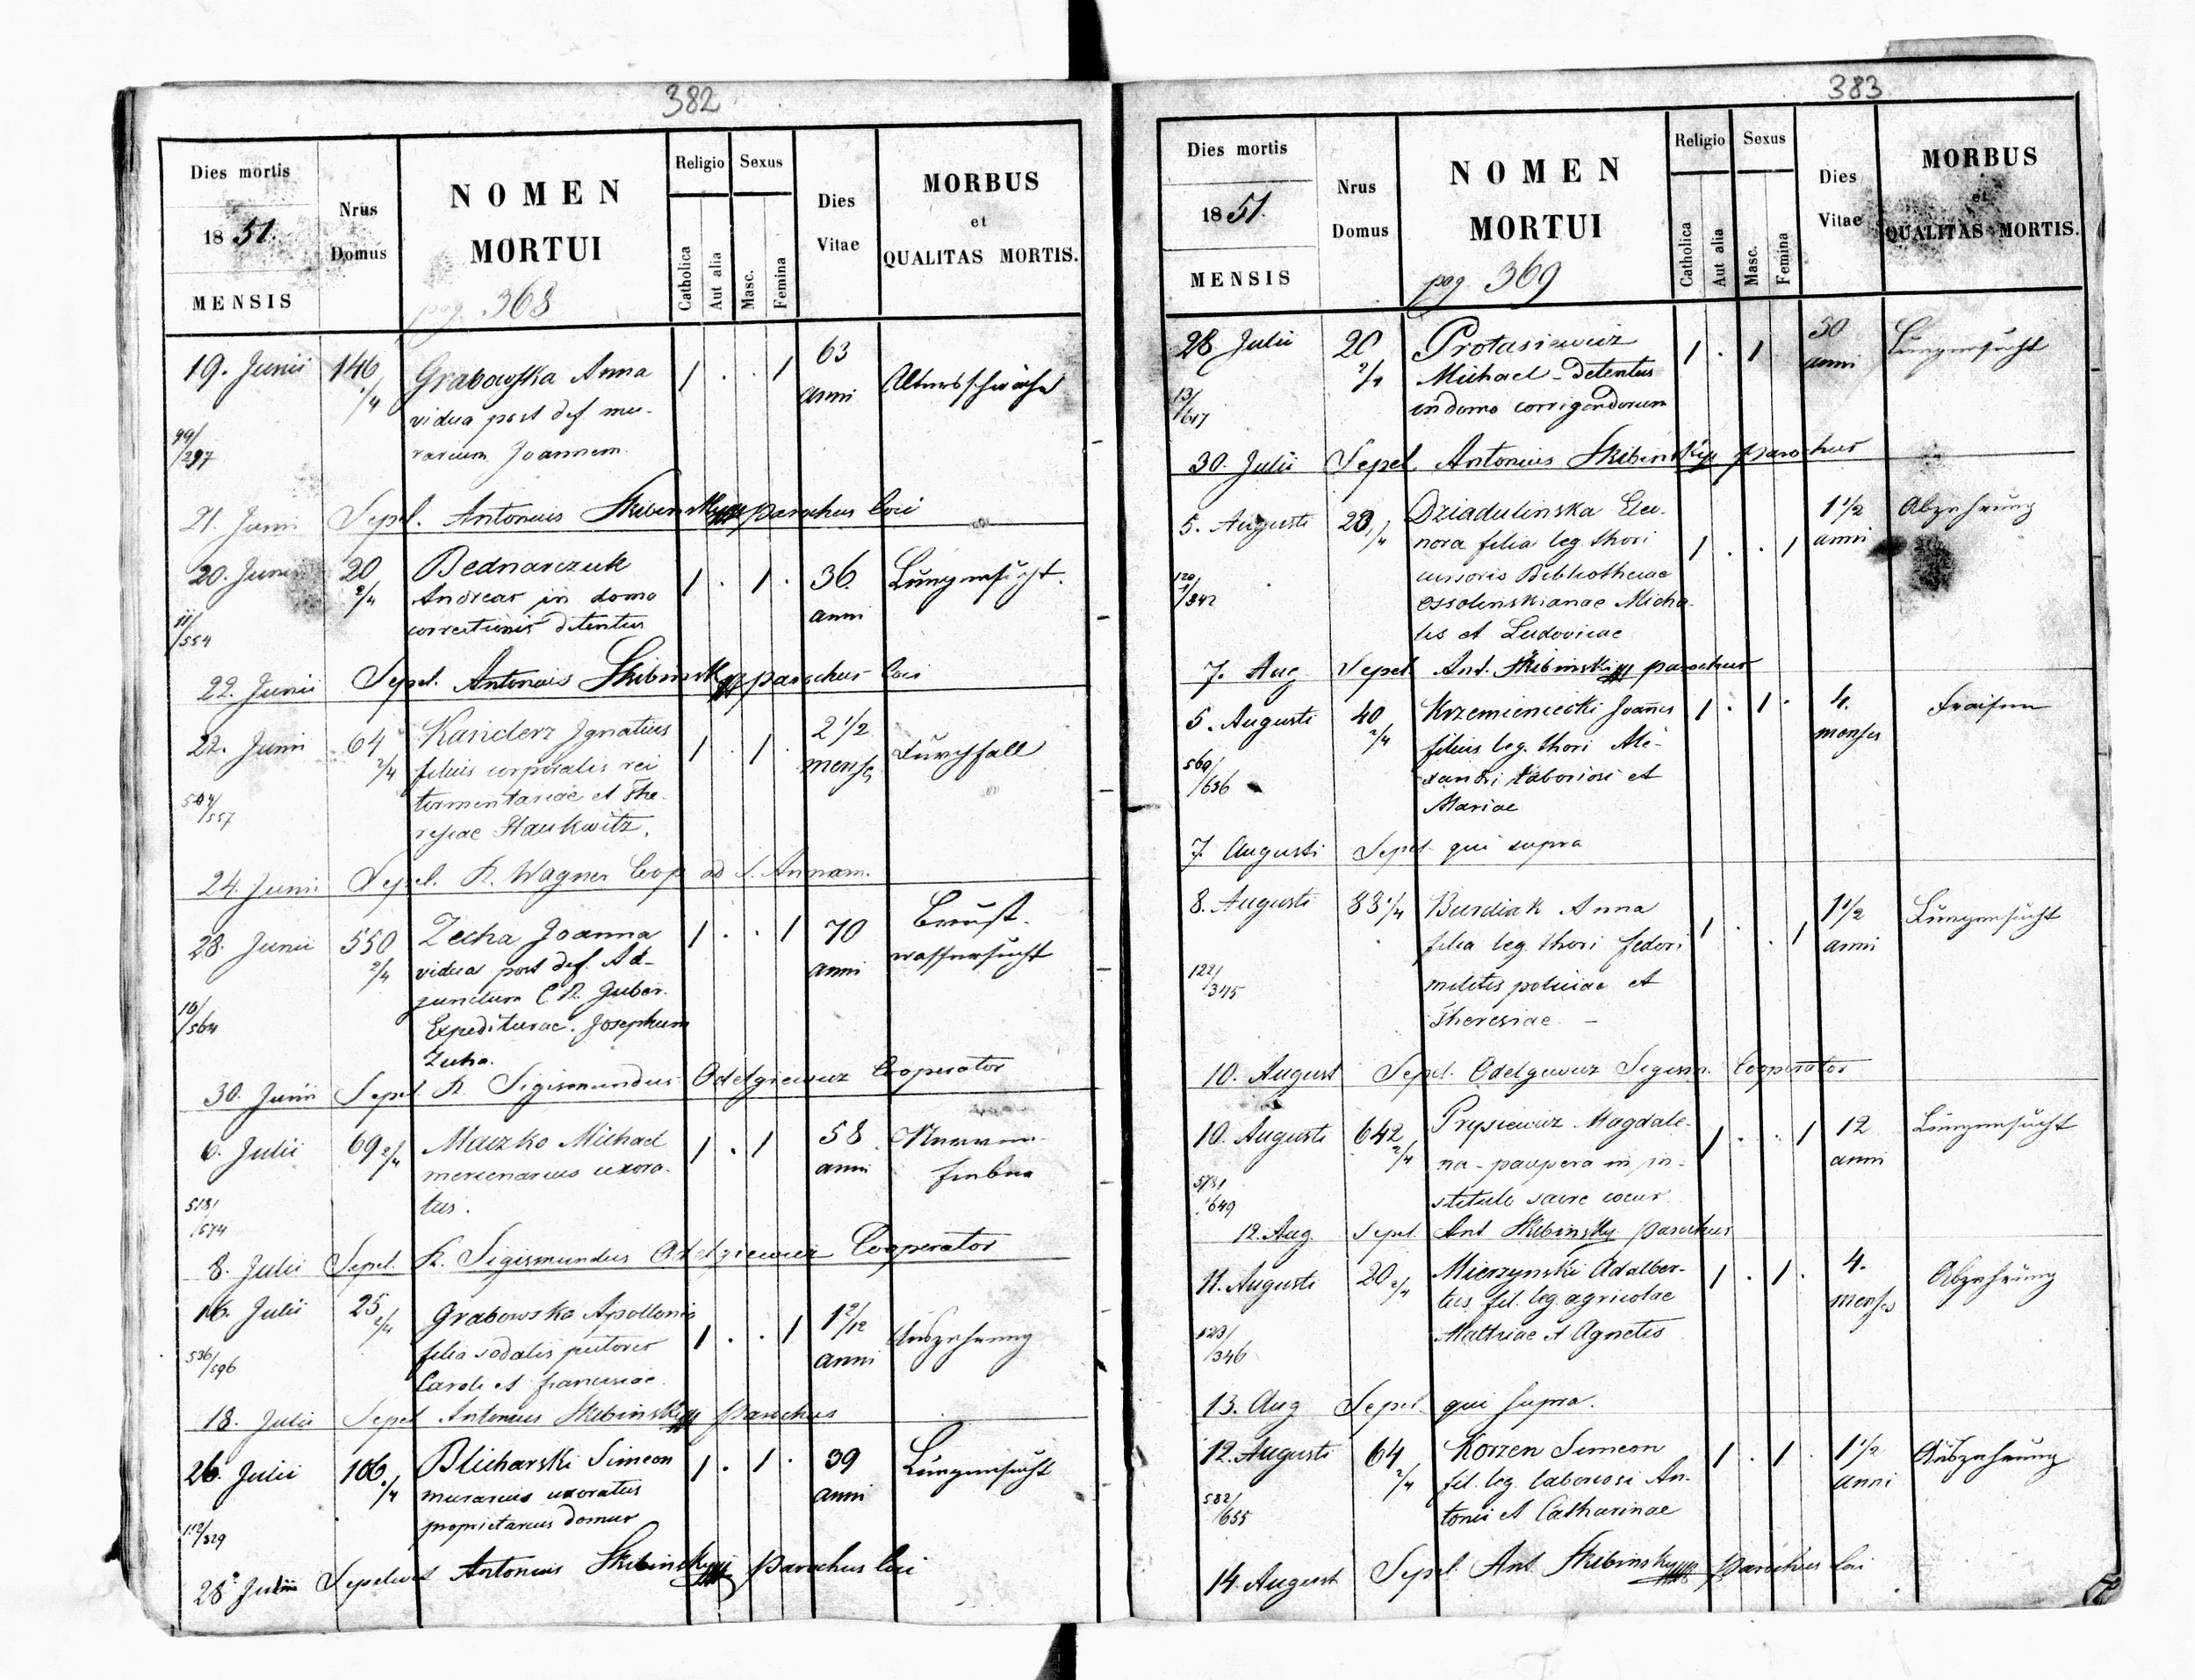 382
Dies mortis
1851.
MENSIS
Nrus
Domus
NOMEN
MORTUI
pag. 368
Religio
Catholica
Aut alia
Sexus
Masc.
Femina
Dies
Vitae
MORBUS
et
QUALITAS MORTIS.
19. Junii 146 Grabowska Anna 1 . . 1 63 Altersschwäche
1/4 vidua post def. mu- anni
99/297 rarium Joannem.
21. Junii Sepel. Antonius Skibinsky parochus loci
20. Junii 20 Bednarczuk 1 . 1 . 36. Lungensucht.
2/4 Andreas in domo anni
11/554 correctionis detentus
22. Junii Sepel. Antonius Skibinsky parochus loci
22. Junii 64 Ignatius 1 . 1 . 2 1/2 Durchfall
2/4 filius corporalis rei mens.
/557 tormentariae et The-
resiae
24. Junii Sepel. R. Wagner Coop ad S. Annam.
28. Junii 550 Zecha Joanna 1 . . 1 70 Brust-
2/4 vidua post def. Ad- anni wassersucht
10/564 junctum C.R. Guber.
Expediturae. Josephum
Zecha.
30. Junii Sepel. R. Sigismundus Odelgiewicz Cooperator
6. Julii 69 2/4 Maczko Michael 1 . 1 58 Nerven-
mercenarius uxora- anni fieber
518/574 tus.
8. Julii Sepel. R. Sigismundus Odelgiewicz Cooperator
16. Julii 25 2/4 Grabowska Apollonia 1 . . 1 1 2/12 Auszehrung
536/596 filia sodalis pictoris anni
Caroli et Franciscae
18. Julii Sepel. Antonius Skibinsky parochus
26. Julii 106 1/4 Blicharski Simeon 1 . 1 . 39 Lungensucht
murarius uxoratus anni
112/329 proprietarius domus
28. Julii Sepelivit Antonius Skibinsky parochus loci
383
Dies mortis
1851.
MENSIS
Nrus
Domus
NOMEN
MORTUI
pag. 369
Religio
Catholica
Aut alia
Sexus
Masc.
Femina
Dies
Vitae
MORBUS
et
QUALITAS MORTIS.
28 Julii 20 Protasiewicz 1 . 1 30 Lungensucht
2/4 Michael - detentus anni
13/617 in domo corrigendorum
30. Julii Sepel. Antonius Skibinsky parochus
5. Augusti 28 1/4 Dziadulinska Eleo- 1 . . 1 1 1/2 Abzehrung
nora filia leg. thori anni
120/342 cursoris Bibliothecae
Ossolinskianae Micha-
lis et Ludovicae
7. Aug Sepel. Ant. Skibinski parochus
5. Augusti 40 Krzemieniecki Joañes 1 . 1 . 4. Fraisen
2/4 filius leg. thori Ale- menses
569/636 xandri laboriosi et
Mariae
7. Augusti Sepel. qui supra
8. Augusti 88 1/4 Burdiak Anna 1 . . 1 1 1/2 Lungensucht
filia leg. thori Fedori anni
122/345 militis policiae et
Theresiae -
10. August Sepel. Odelgiewicz Sigism. Cooperator
10. Augusti 642 2/4 Prysiewicz Magdale- 1 . . 1 12 Lungensucht
na - paupera in in- anni
578/649 stituto sacre coeur
12. Aug Sepel. Ant Skibinsky parochus
11. Augusti 20 2/4 Mierzynski Adalber- 1 . 1 . 4. Abzehrung
tus fil. leg. agricolae menses
123/346 Mathiae et Agnetis
13. Aug Sepel. qui supra.
12. Augusti 64 Korzen Simeon 1 . 1 . 1 1/2 Auszehrung
2/4 fil. leg. laboriosi An- anni
582/655 tonii et Catharinae
14. August Sepel. Ant Skibinsky parochus loci